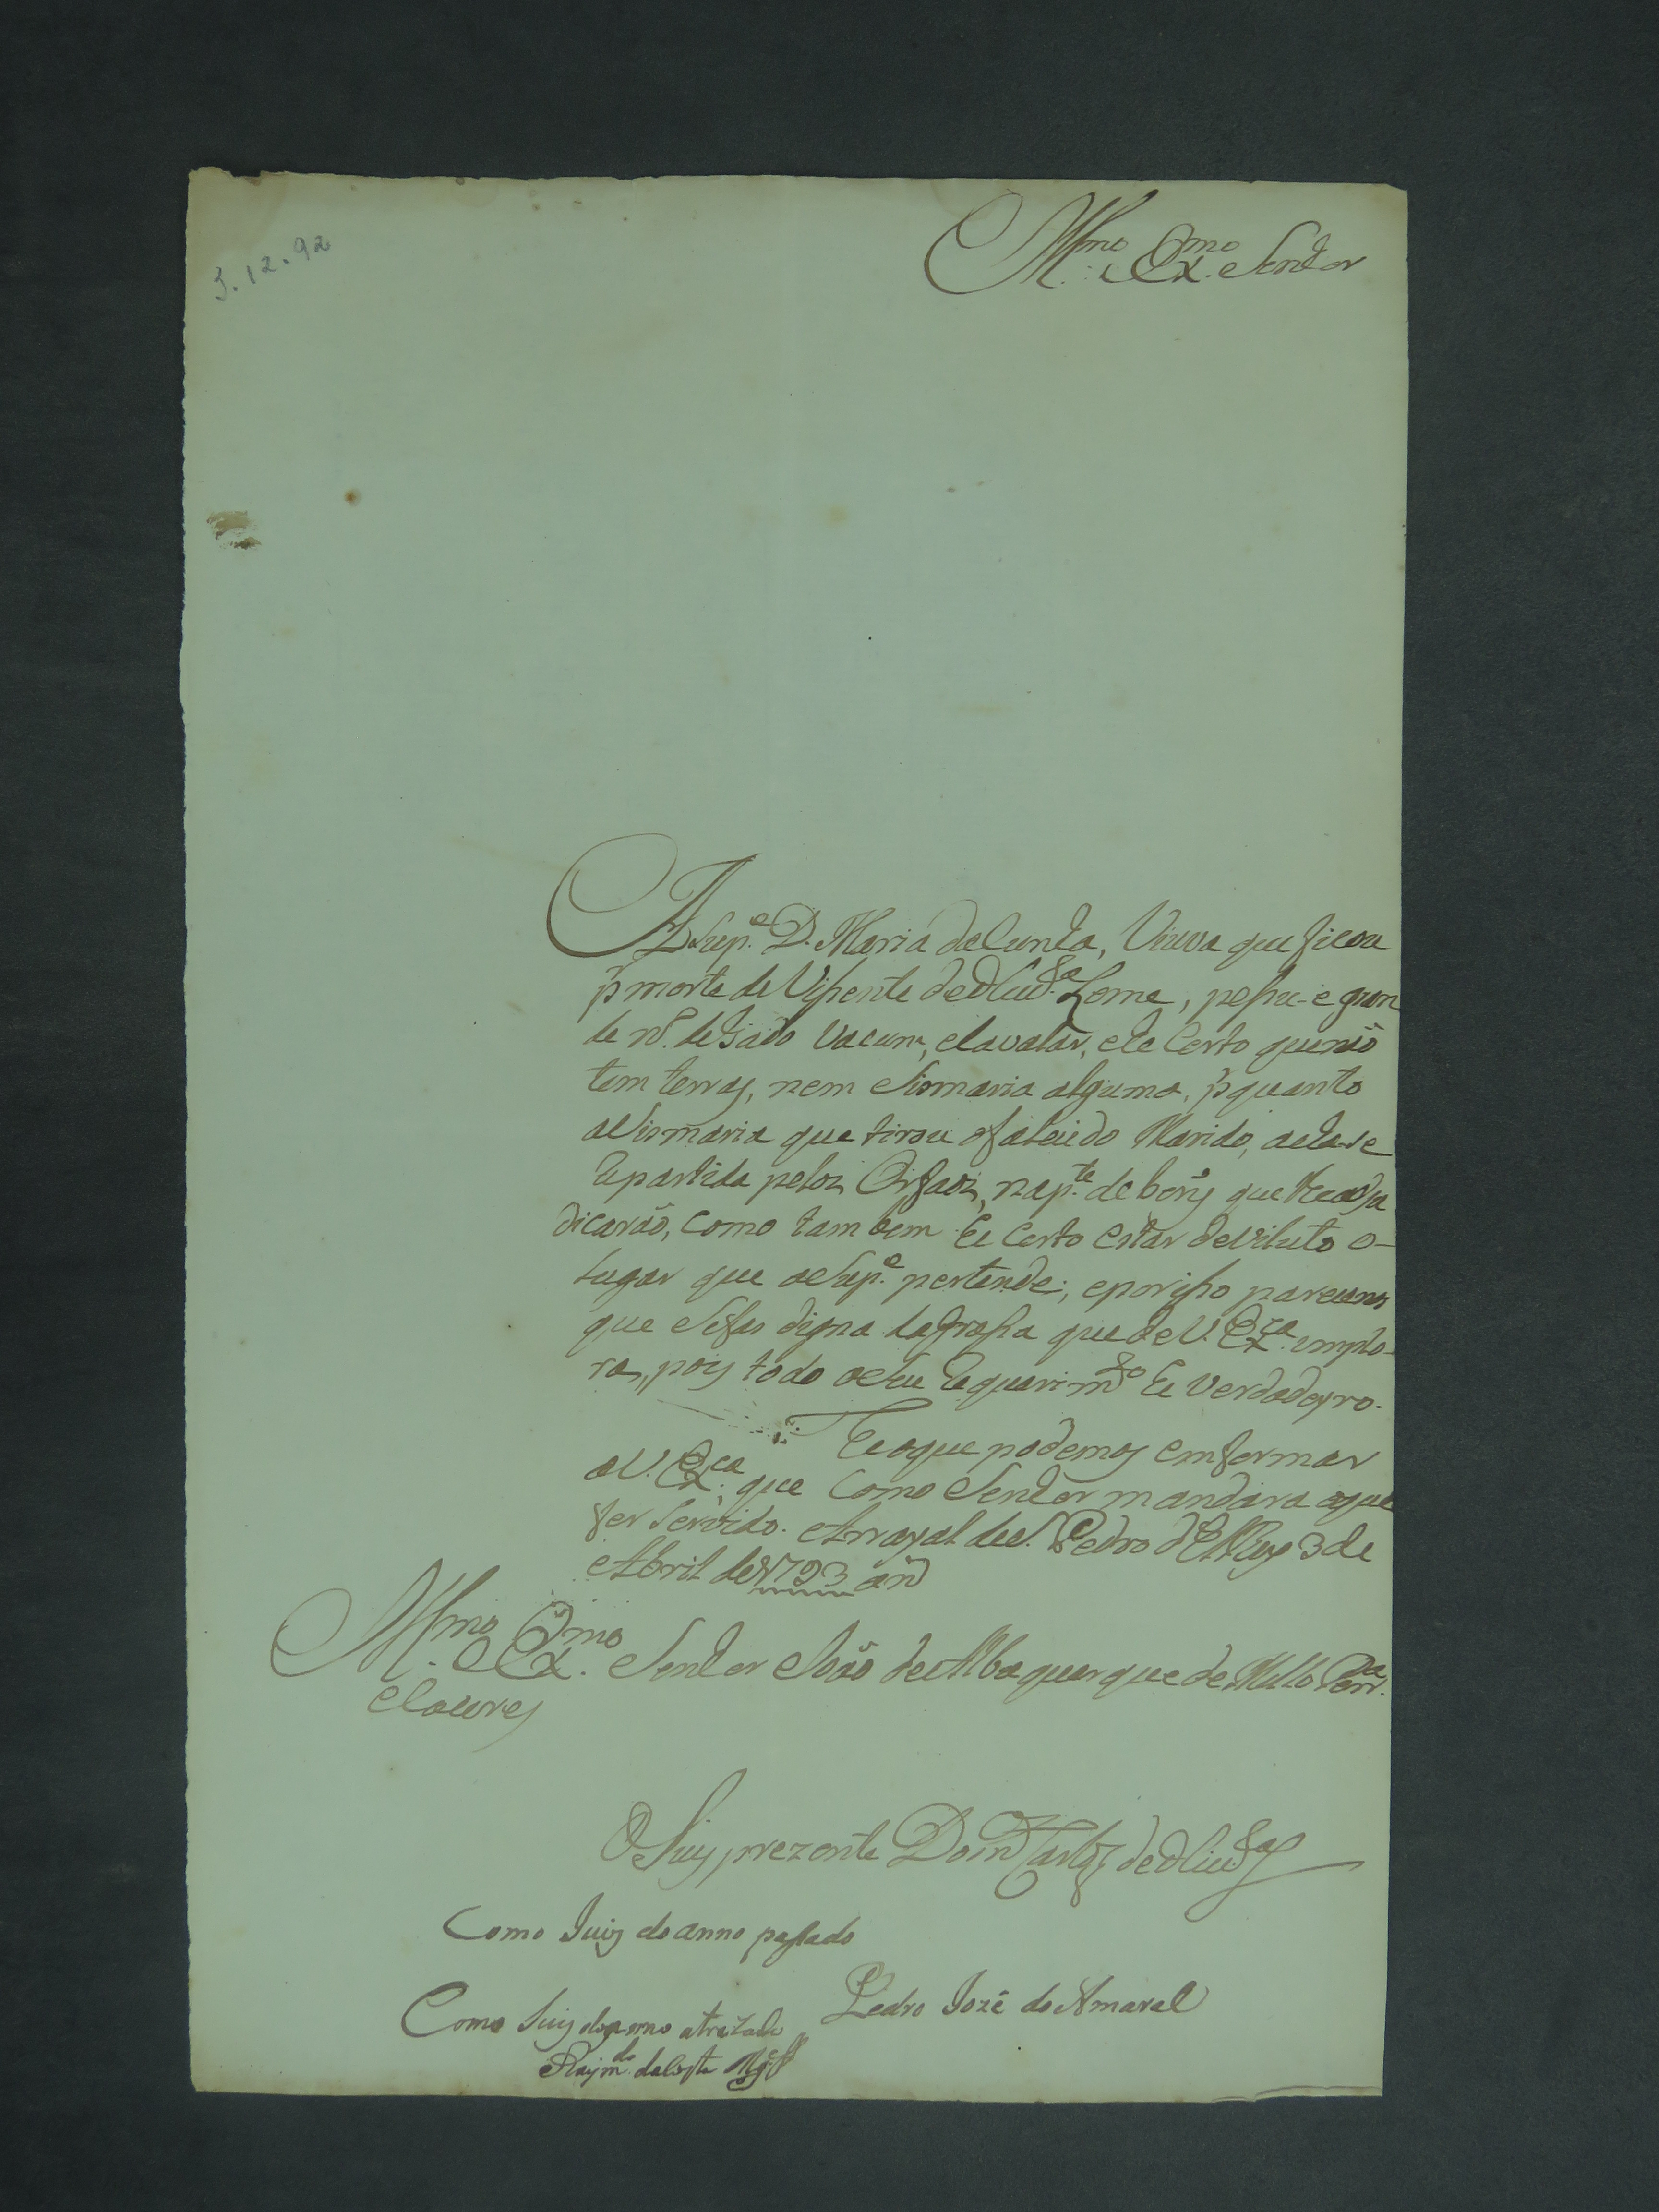 3.12.92
Illmo. e Exmo. Senhor
A Supe. D. Maria da Cunha, Viuva que ficou
p morte de Vissente de Olivra. Leme, pessue e gran
de no. de Gado Vacum, e Cavalar, e he Certo que não
tem terras, nem Sismaria alguma, p quanto
a Sismaria que tirou o falecido Marido, acha-se
Repartida pelos Orfaos, na pte. de bens que lhe adju
dicarão, como tambem he Certo estar deviluto o
lugar que a Supe. pertende; e por isso parece nos
que se fas digna da grassa que de V. Exca. implo-
ra, pois todo o seu Requerimto. he verdadeyro.
He o que podemos emformar
a V. Exca. que Como Senhor mandara o que
for Servido. Arrayal de S. Pedro d'El Rey 3 de
Abril de 1793 an
Illmo. e Exmo. Senhor João de Albaquerque de Mello Pera.
e Caceres
O Juis prezente Domos Carlos de Olivra
Como Juis do anno passado
Pedro Jozé do Amaral
Como Juis do anno atrazado
Raymdo. da Costa